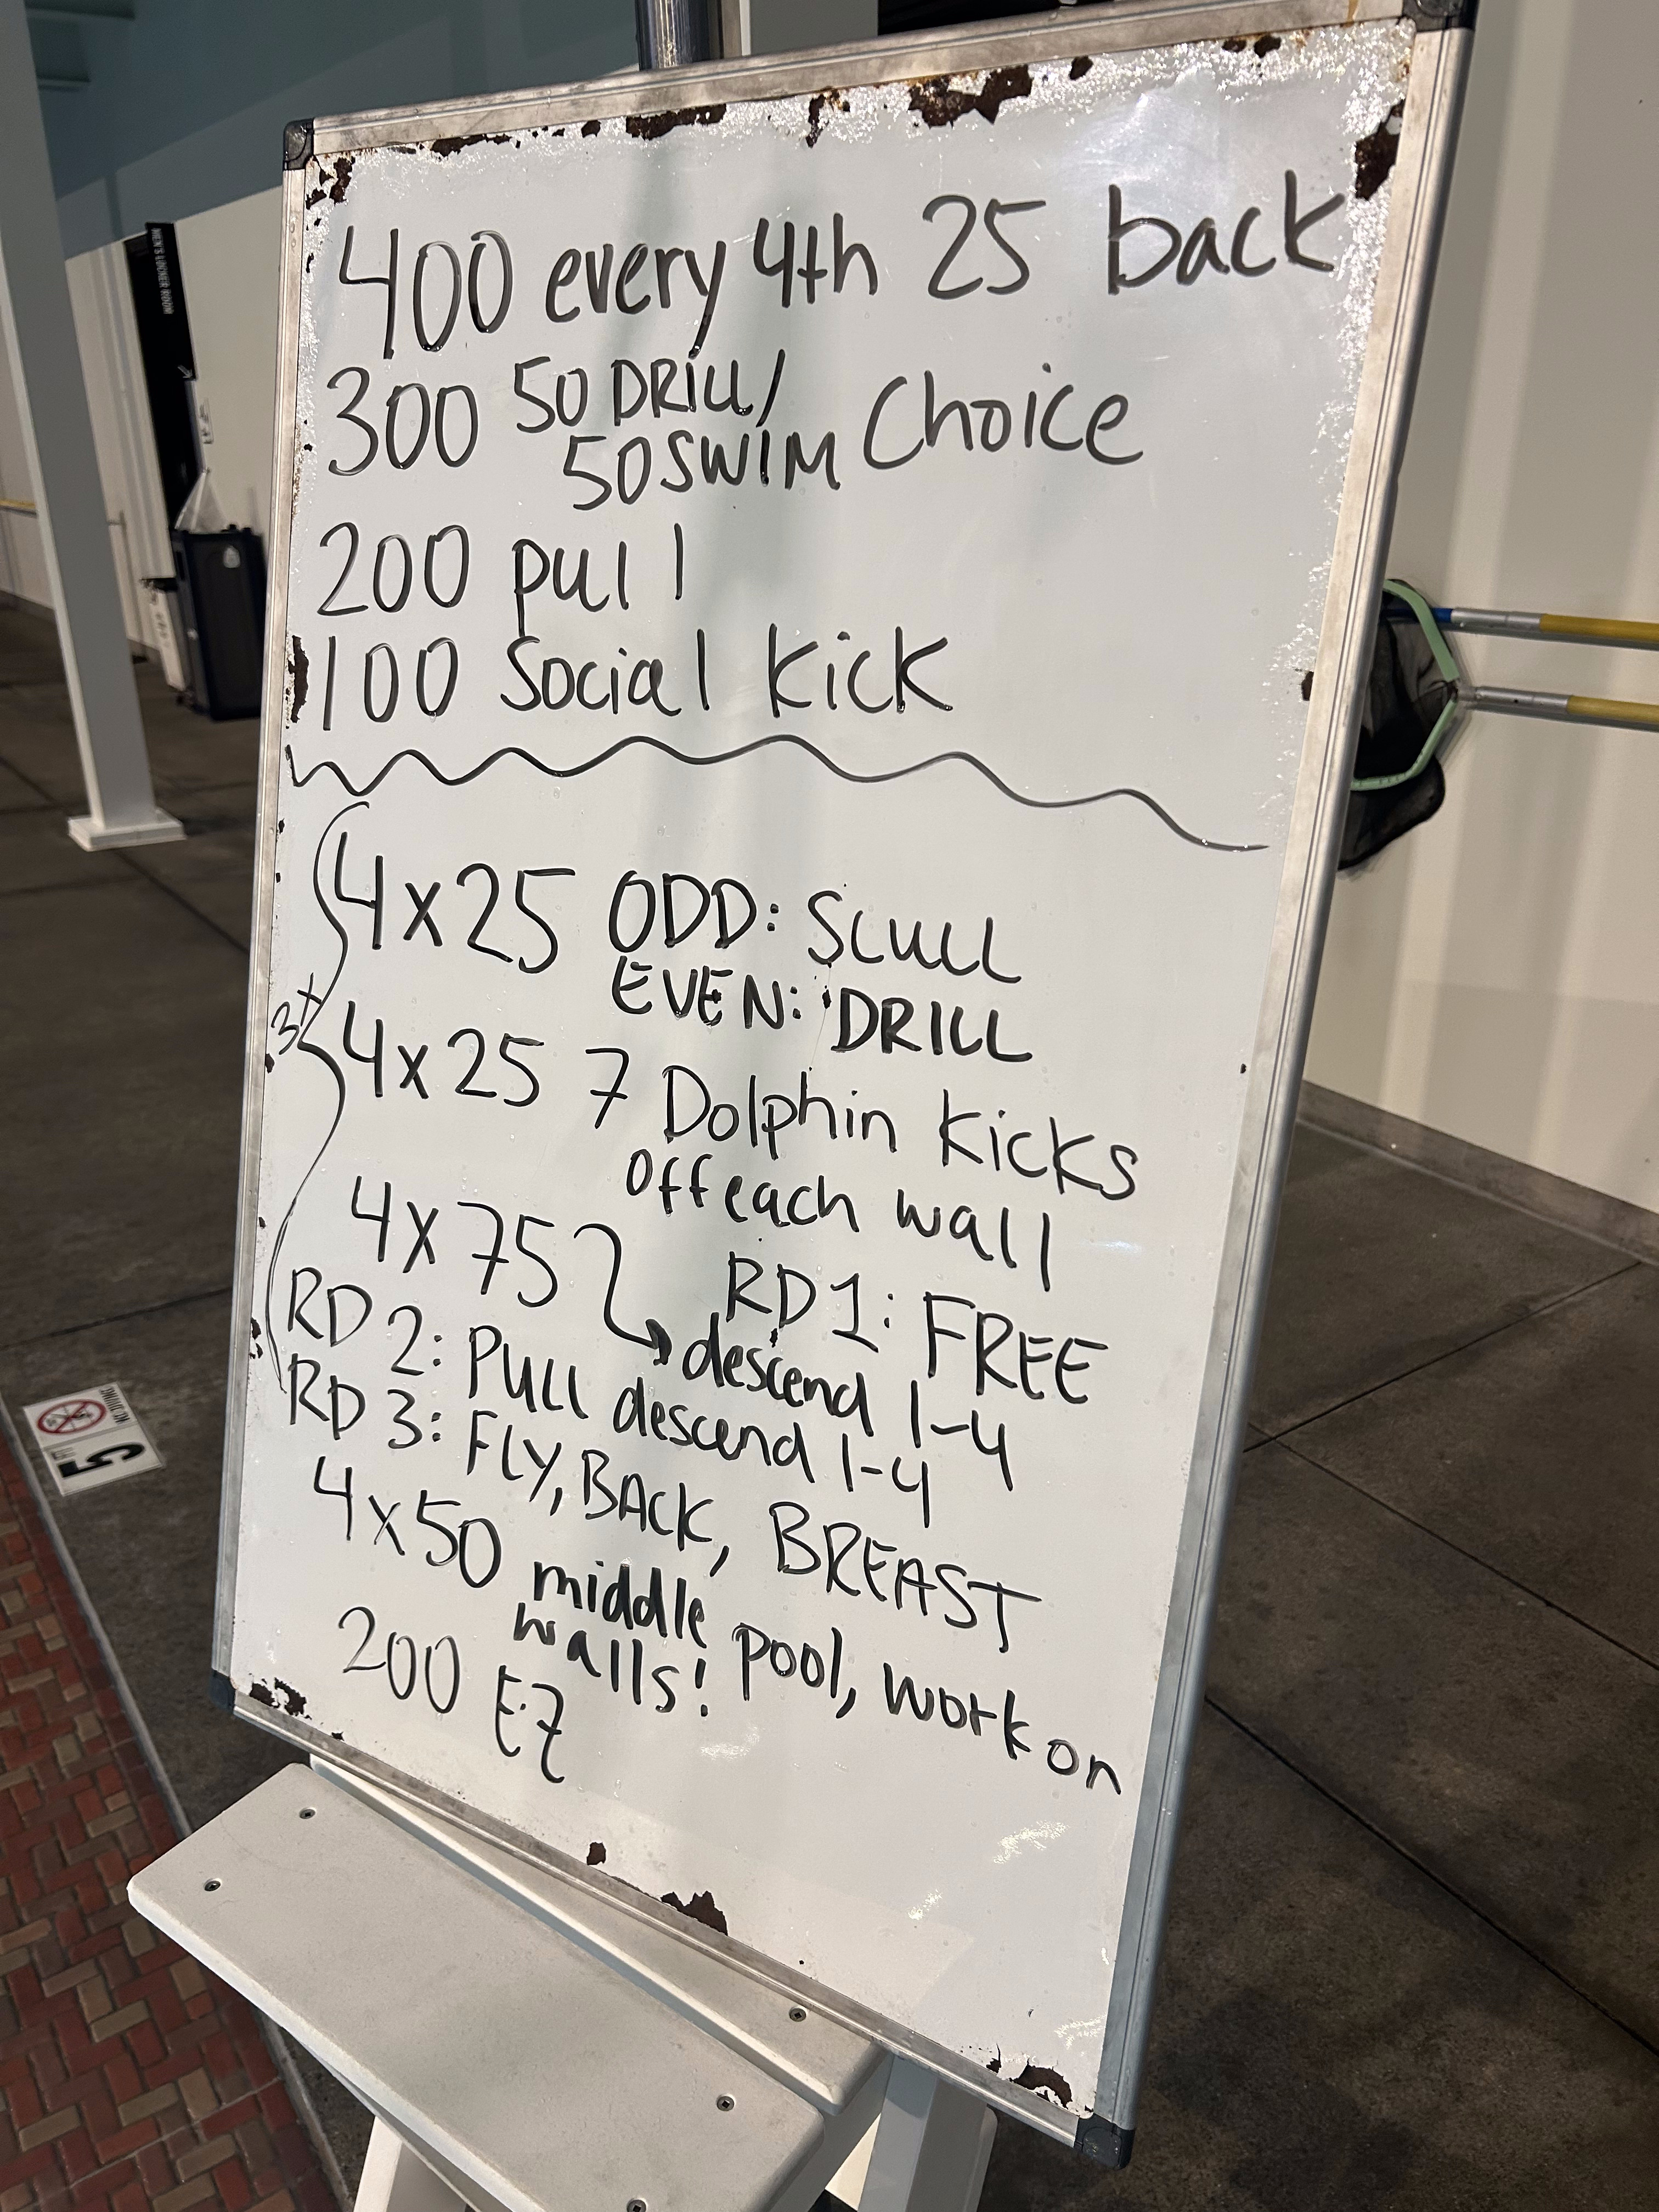 400 every 4th 25 back
300 50 DRILL/
50 SWIM Choice
200 pull
100 Social Kick
3x
4x25 ODD: SCULL
EVEN: DRILL
4x25 7 Dolphin Kicks
off each wall
4x75 RD 1: FREE
descend 1-4
RD 2: PULL descend 1-4
RD 3: FLY, BACK, BREAST
4x50 middle pool, work on
walls!
200 EZ
MEN'S LOCKER ROOM
NO DIVING
5 FT